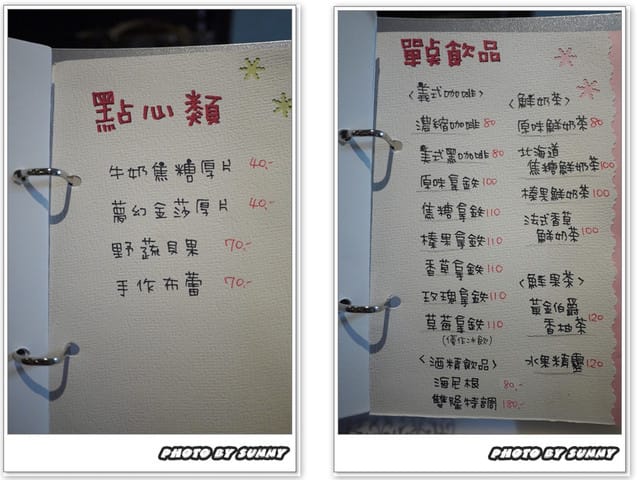 點心類
牛奶焦糖厚片 40.-
夢幻金莎厚片 40.-
野蔬貝果 70.-
手作布蕾 70.-
PHOTO BY SUNNY
單點飲品
〈義式咖啡〉
濃縮咖啡 80
美式黑咖啡 80
原味拿鐵 100
焦糖拿鐵 110
榛果拿鐵 110
香草拿鐵 110
玫瑰拿鐵 110
草莓拿鐵 110
(僅作冰飲)
〈酒精飲品〉
海尼根 80.-
雙隆特調 180.-
〈鮮奶茶〉
原味鮮奶茶 80
北海道
焦糖鮮奶茶 100
榛果鮮奶茶 100
法式香草
鮮奶茶 100
〈鮮果茶〉
黃金伯爵
香柚茶 120
水果精靈 120
PHOTO BY SUNNY